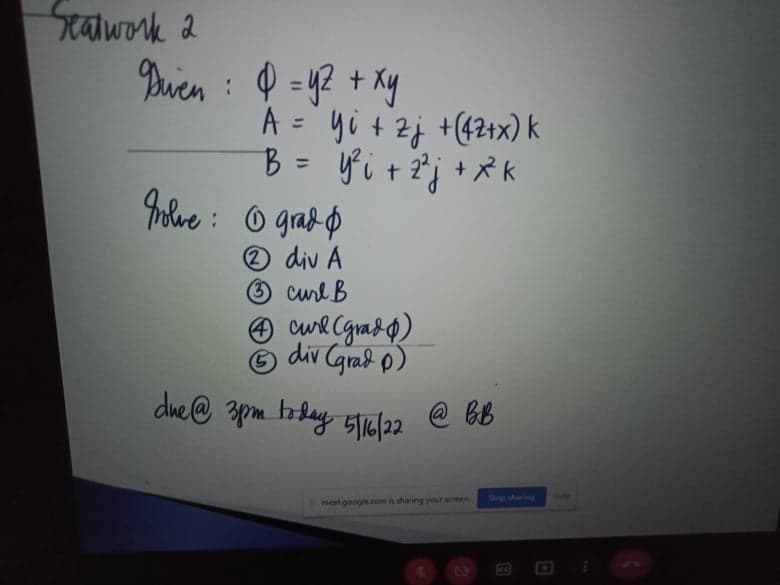 Seatwork 2
Given : ϕ = yz + xy
A = yi + zj + (4z+x) k
B = y²i + z²j + x² k
Solve : ① grad ϕ
② div A
③ curl B
④ curl (grad ϕ)
⑤ div (grad ρ)
due @ 3pm today 5/16/22 @ BB
meet.google.com is sharing your screen. Stop sharing Hide